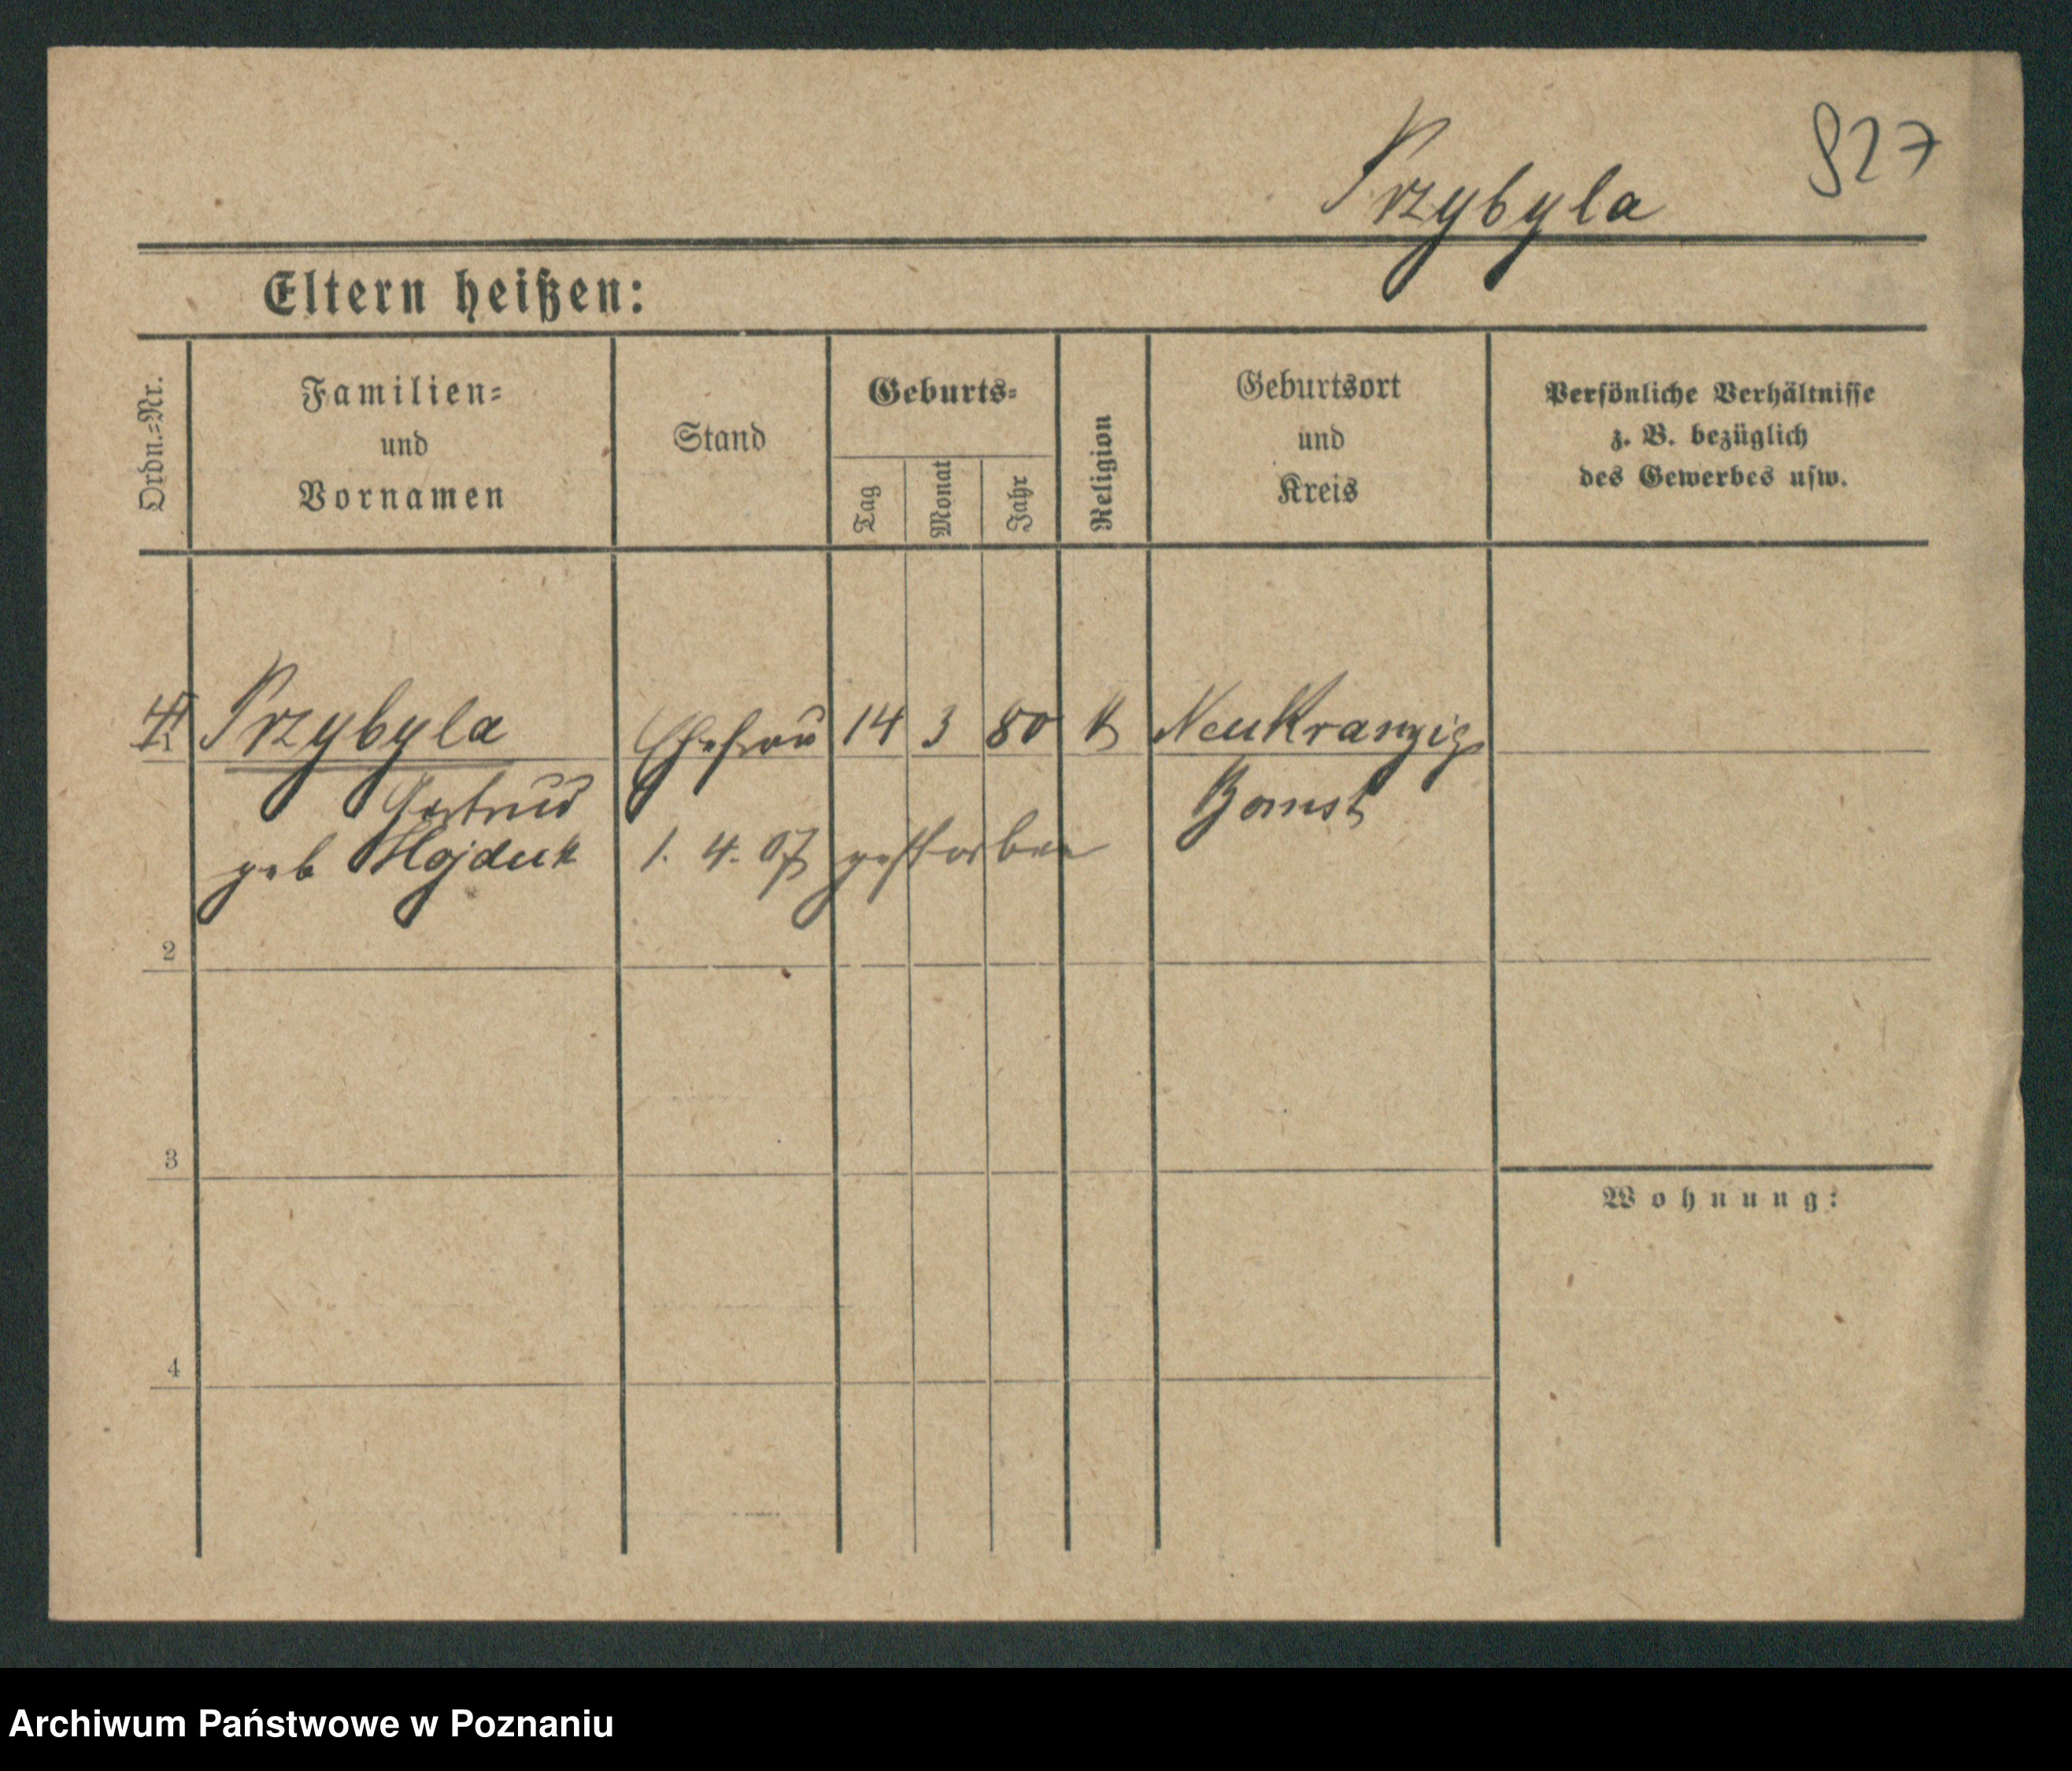 Przybyla
927
Eltern heißen:
Ordn.=Nr.
Familien=
und
Vornamen
Stand
Geburts=
Tag
Monat
Jahr
Religion
Geburtsort
und
Kreis
Persönliche Verhältnisse
z. B. bezüglich
des Gewerbes usw.
Przybyla Ehefrau 14 3 80 k Neu Kranzig
Gertrud Bomst
geb Hojduk 1. 4. 07 gestorben
2
3
Wohnung:
4
Archiwum Państwowe w Poznaniu